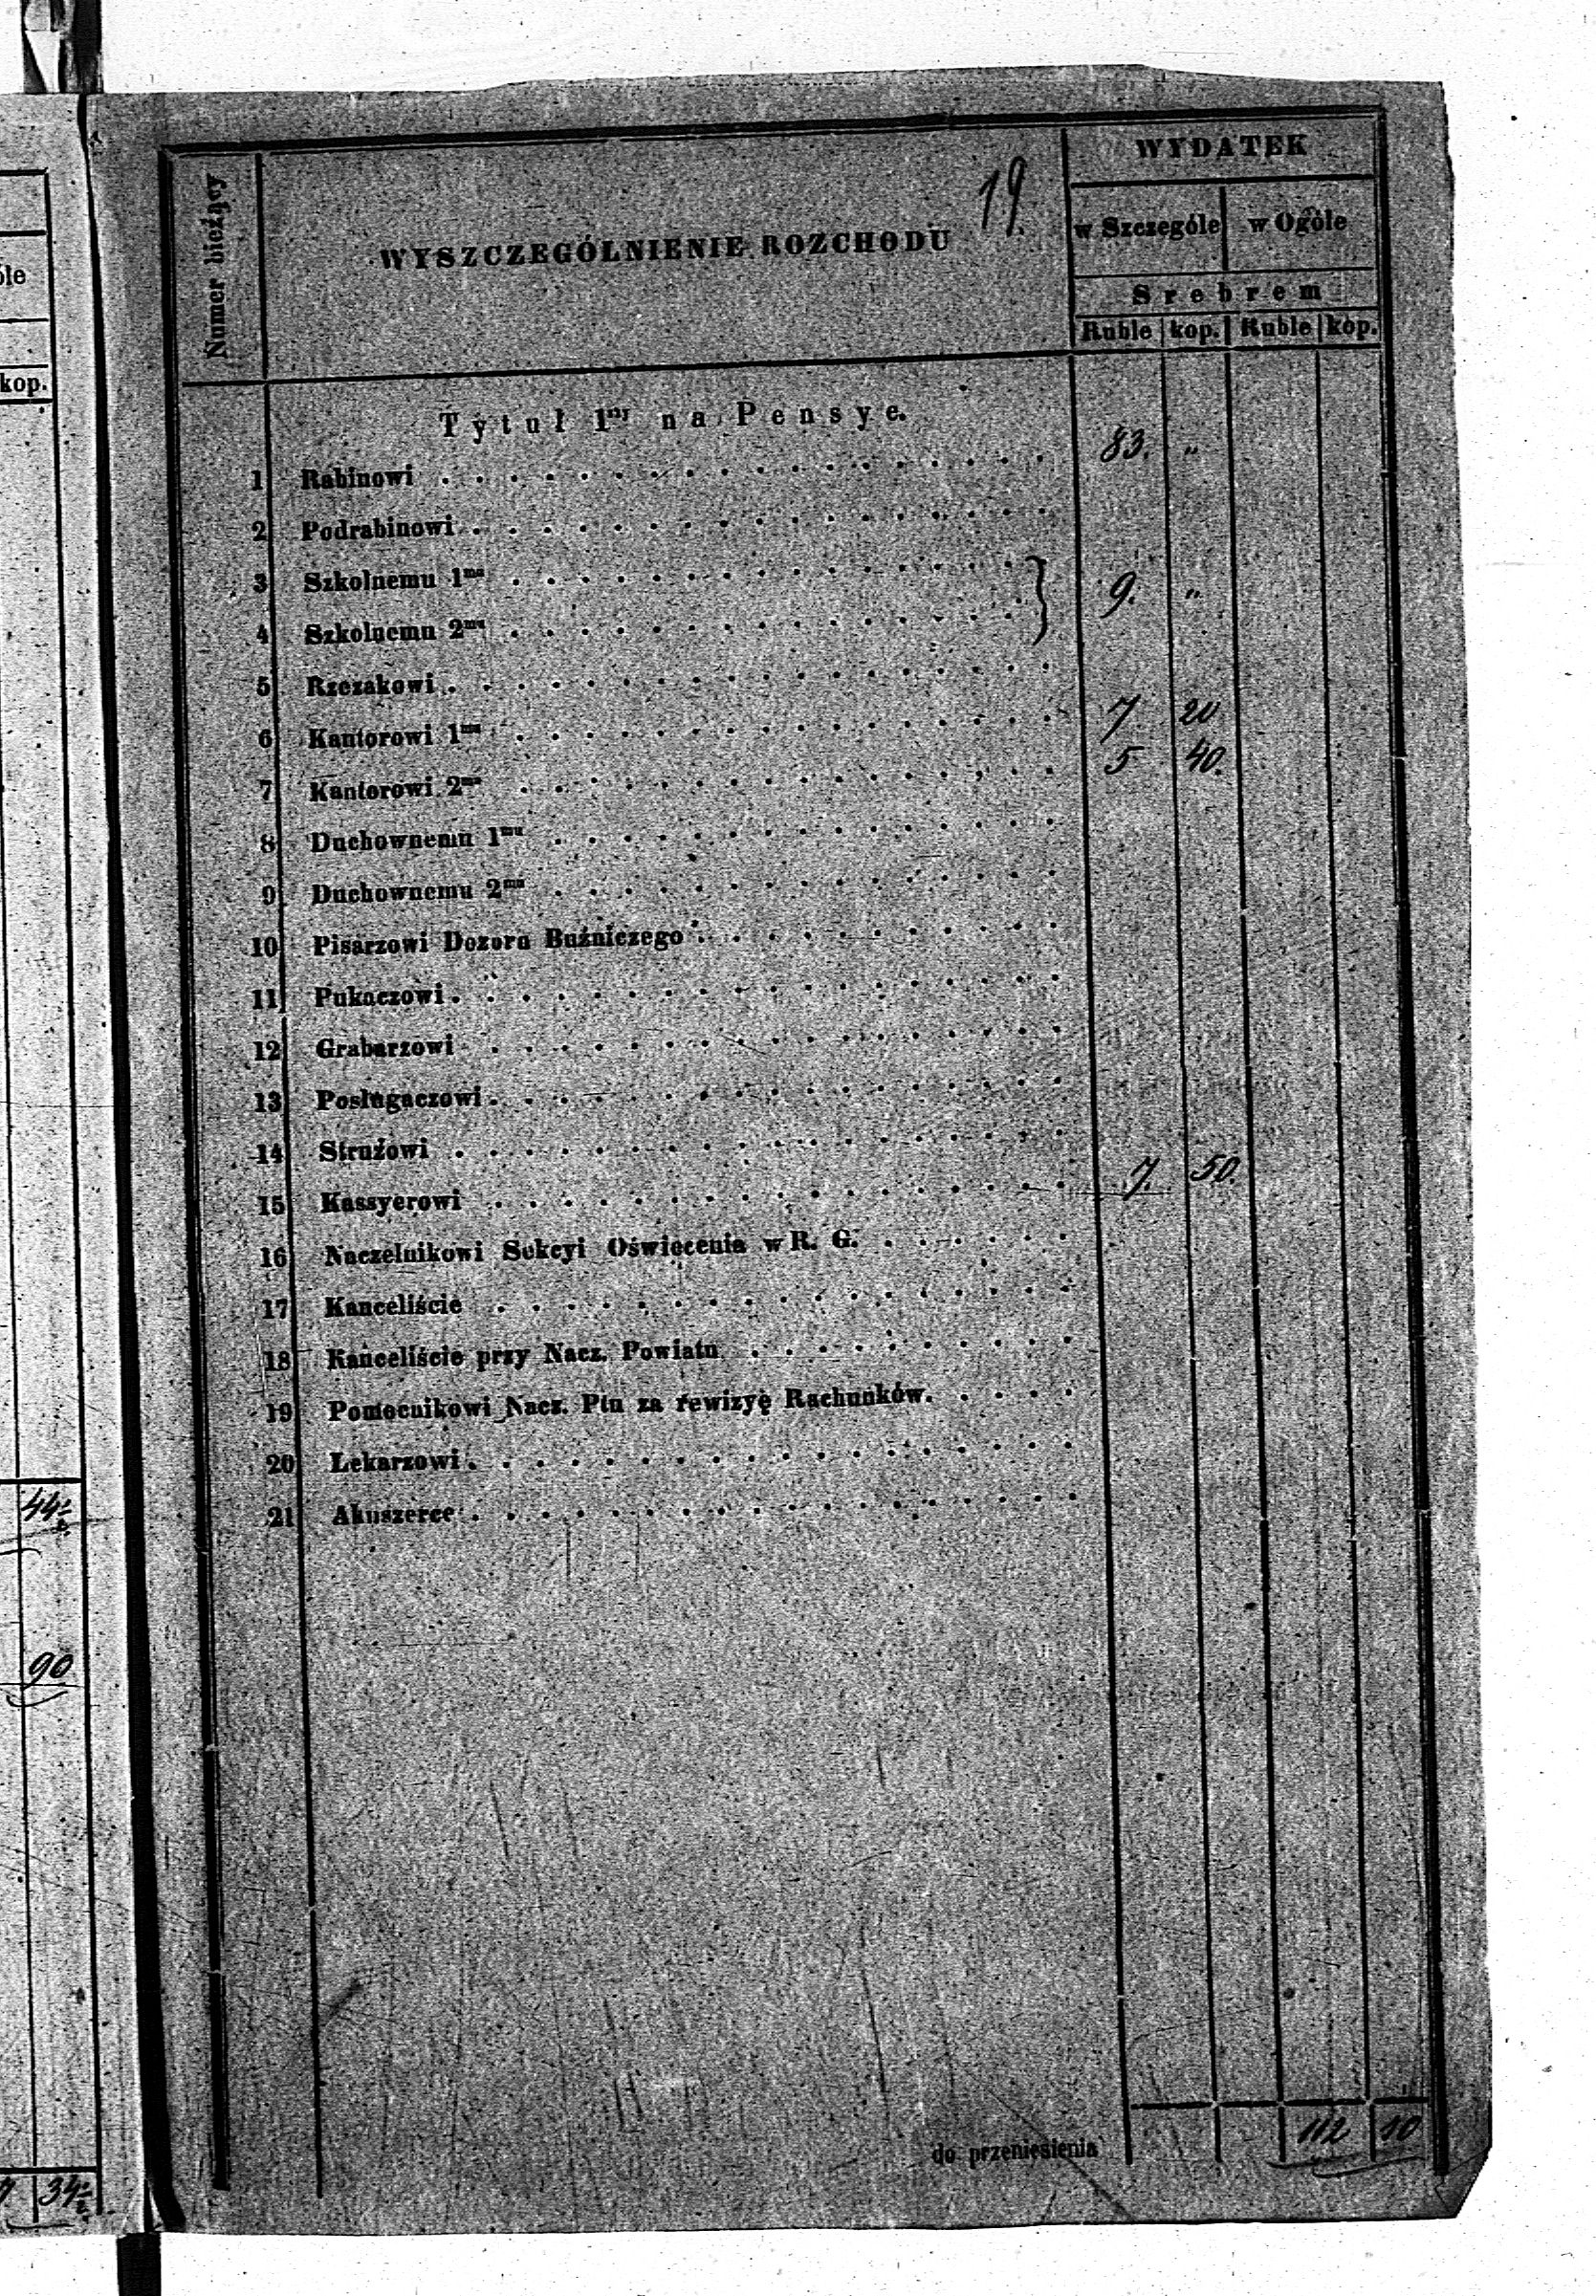 ole
kop.
44 1/2
90
7 34 1/2
19.
Numer bieżący
WYSZCZEGÓLNIENIE ROZCHODU
WYDATEK
w Szczególe w Ogóle
Srebrem
Ruble kop. Ruble kop.
Tytuł 1ny na Pensye.
1 Rabinowi 83. "
2 Podrabinowi
3 Szkolnemu 1mu
4 Szkolnemu 2mu } 9. "
5 Rzezakowi
6 Kantorowi 1mu 7 20
7 Kantorowi 2mu 5 40.
8 Duchownemu 1mu
9 Duchownemu 2mu
10 Pisarzowi Dozoru Buźniczego
11 Pukaczowi
12 Grabarzowi
13 Posługaczowi
14 Stružowi
15 Kassyerowi 7. 50.
16 Naczelnikowi Sekcyi Oświecenia w R. G.
17 Kanceliście
18 Kanceliście przy Nacz. Powiatu
19 Pomocnikowi Nacz. Ptu za rewizyę Rachunków.
20 Lekarzowi
21 Akuszerce
do przeniesienia 112 10